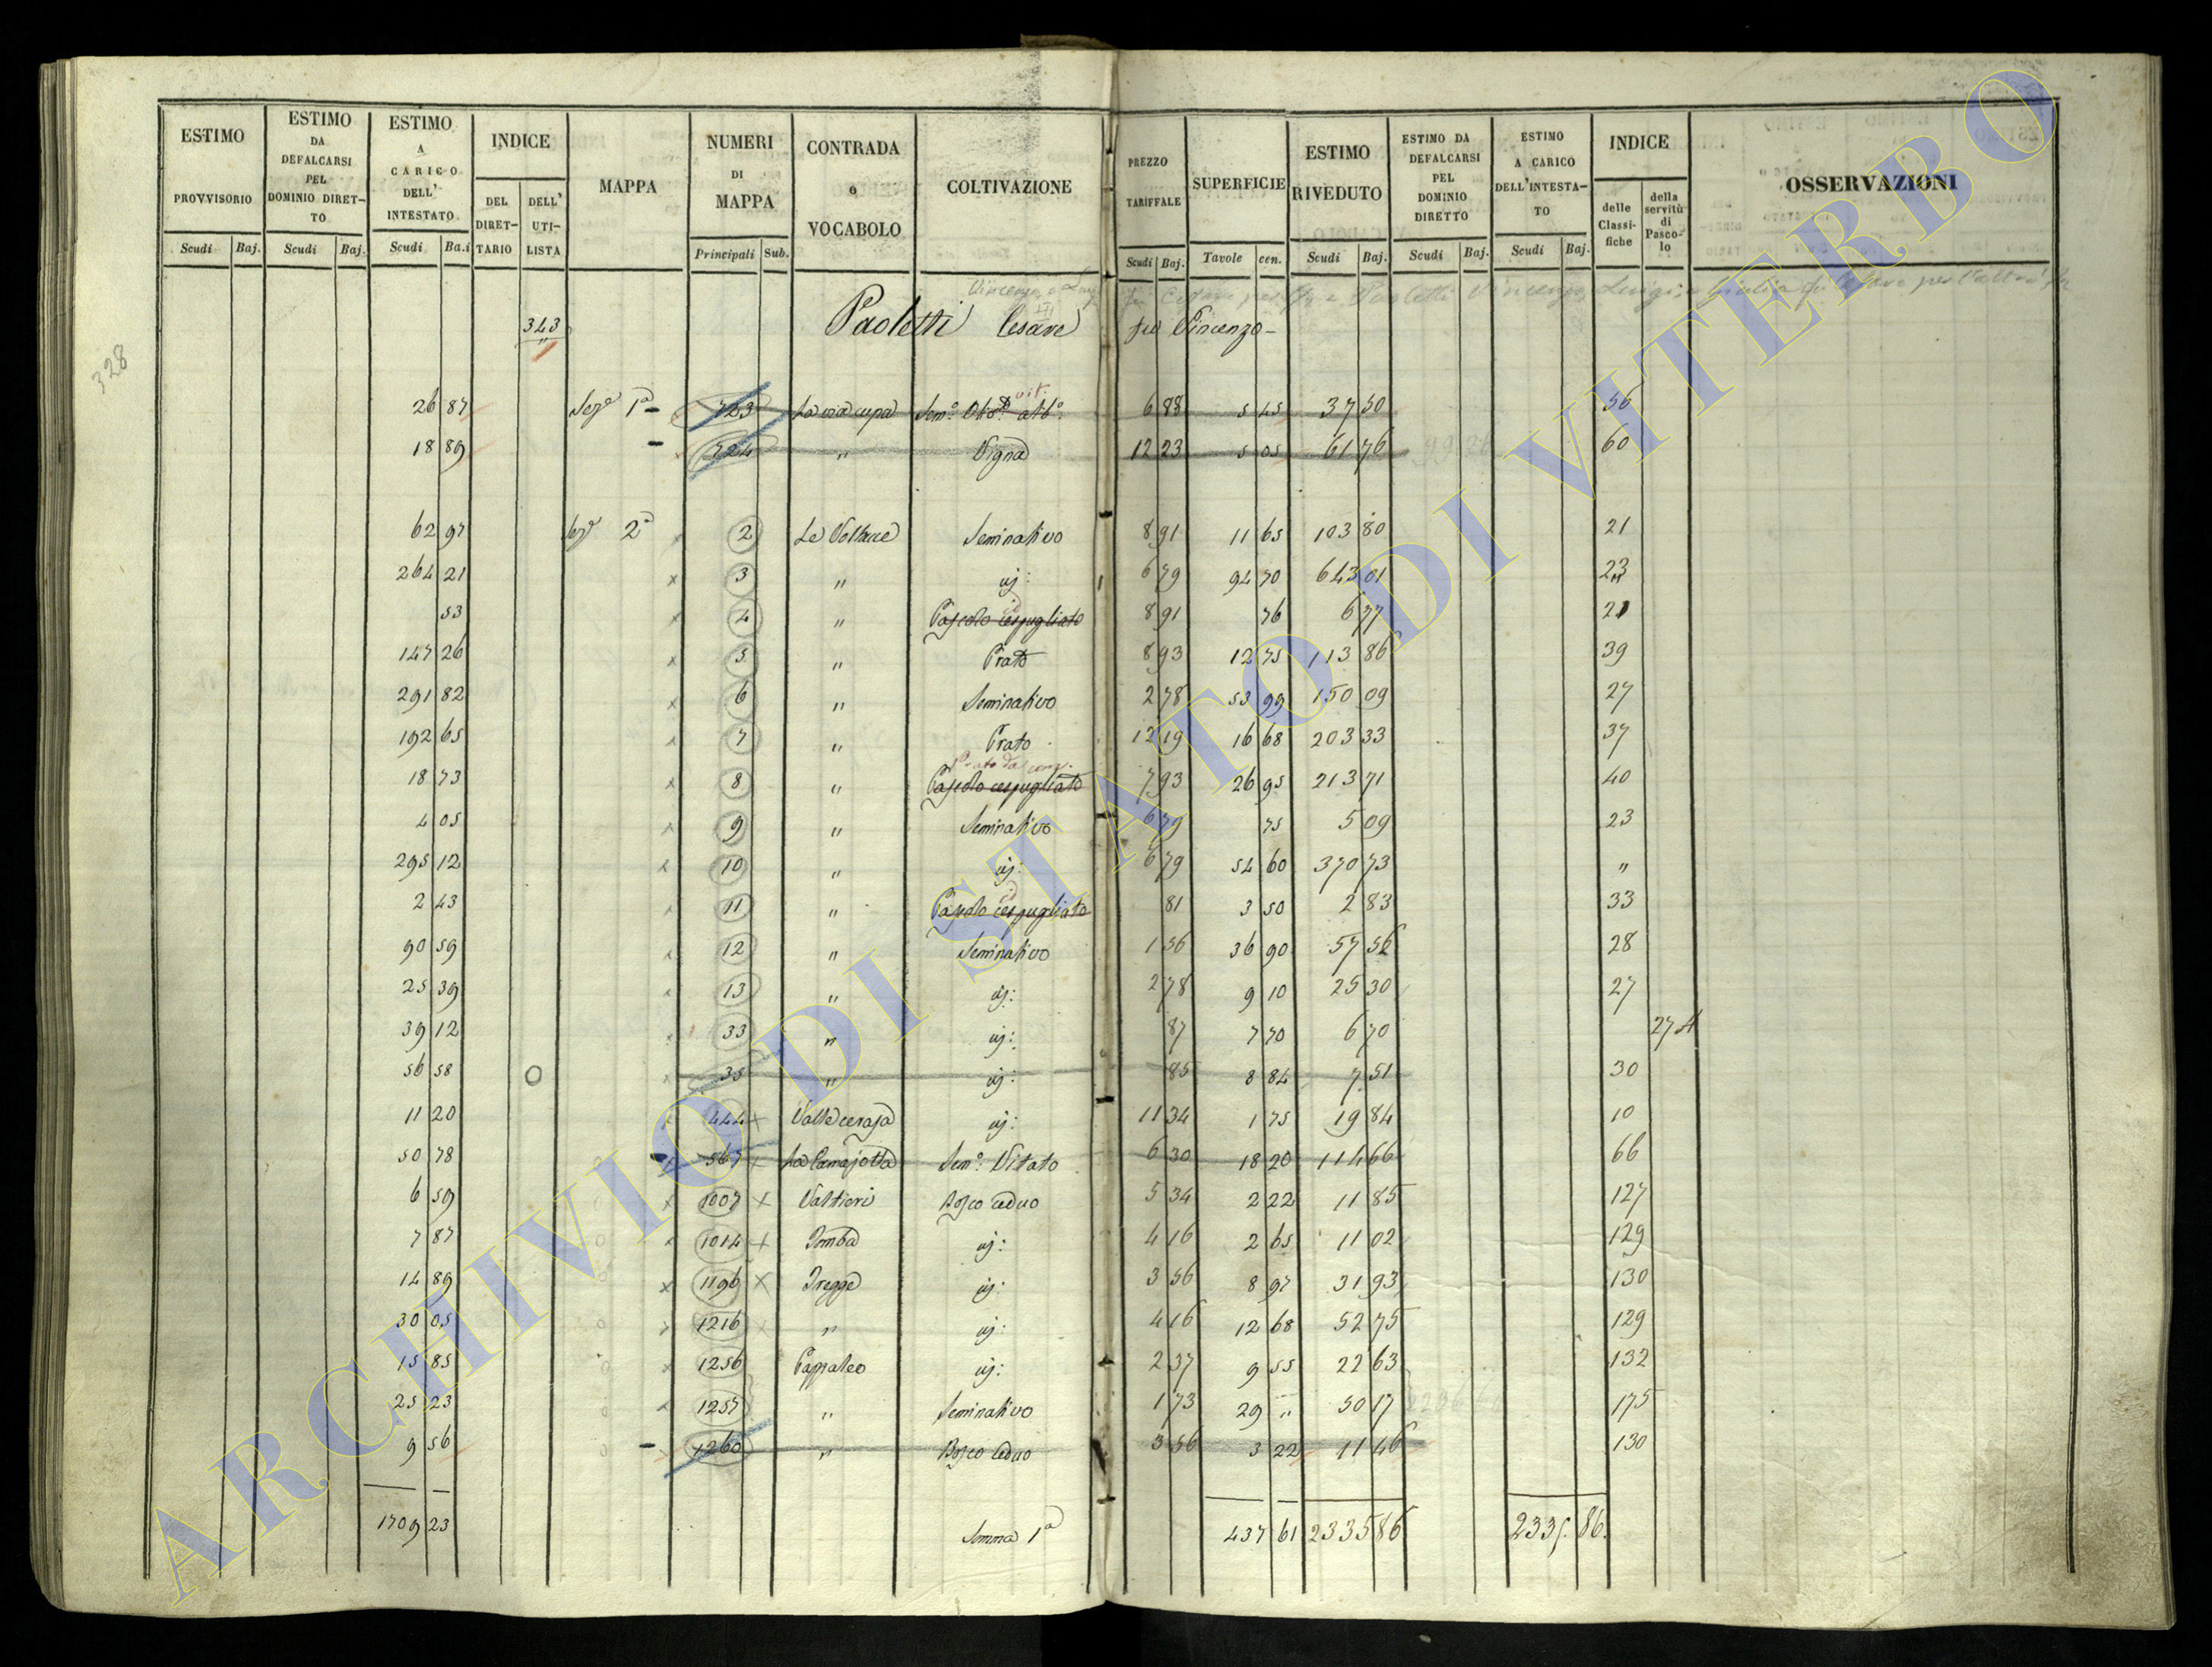 ESTIMO PROVVISORIO Scudi Baj.
ESTIMO DA DEFALCARSI PEL DOMINIO DIRETTO Scudi Baj.
ESTIMO A CARICO DELL' INTESTATO Scudi Ba.i
INDICE DEL DIRETTARIO DELL' UTILISTA
MAPPA
NUMERI DI MAPPA Principali Sub.
CONTRADA o VOCABOLO
COLTIVAZIONE
PREZZO TARIFFALE Scudi Baj.
SUPERFICIE Tavole cen.
ESTIMO RIVEDUTO Scudi Baj.
ESTIMO DA DEFALCARSI PEL DOMINIO DIRETTO Scudi Baj.
ESTIMO A CARICO DELL'INTESTATO Scudi Baj.
INDICE delle Classifiche della servitù di Pascolo
OSSERVAZIONI
328
343 Paoletti Cesare fu Vincenzo
26 87 Sez.e 1a 723 La via cupa Sem.o vit. alb.o 6 88 5 45 37 50 56
18 89 724 " Vigna 12 23 5 05 61 76 60
62 97 Sez.e 2a 2 Le Voltacce Seminativo 8 91 11 65 103 80 21
264 21 3 " id: 6 79 94 70 643 01 23
53 4 " Pascolo cespugliato 8 91 76 6 77 21
147 26 5 " Prato 8 93 12 75 113 86 39
291 82 6 " Seminativo 2 78 53 99 150 09 27
192 65 7 " Prato 12 19 16 68 203 33 37
18 73 8 " Pascolo cespugliato Prato da 7 93 26 95 213 71 40
4 05 9 " Seminativo 6 79 75 5 09 23
295 12 10 " id: 6 79 54 60 370 73 "
2 43 11 " Pascolo cespugliato 81 3 50 2 83 33
90 59 12 " Seminativo 1 56 36 90 57 56 28
25 39 13 " id: 2 78 9 10 25 30 27
39 12 33 " id: 87 7 70 6 70 27 A
56 58 35 " id: 85 8 84 7 51 30
11 20 444 Valle cerasa id: 11 34 1 75 19 84 10
50 78 567 La Camajotta Sem.o Vitato 6 30 18 20 114 66 66
6 59 1007 Valtieri Bosco ceduo 5 34 2 22 11 85 127
7 87 1014 Tomba id: 4 16 2 65 11 02 129
14 89 1196 Tregge id: 3 56 8 97 31 93 130
30 05 1216 " id: 4 16 12 68 52 75 129
15 85 1256 Pappaleo id: 2 37 9 55 22 63 132
25 23 1257 " Seminativo 1 73 29 " 50 17 175
9 56 1260 " Bosco ceduo 3 56 3 22 11 46 130
1709 23 Somma 1a 437 61 2335 86 2335. 86.
ARCHIVIO DI STATO DI VITERBO